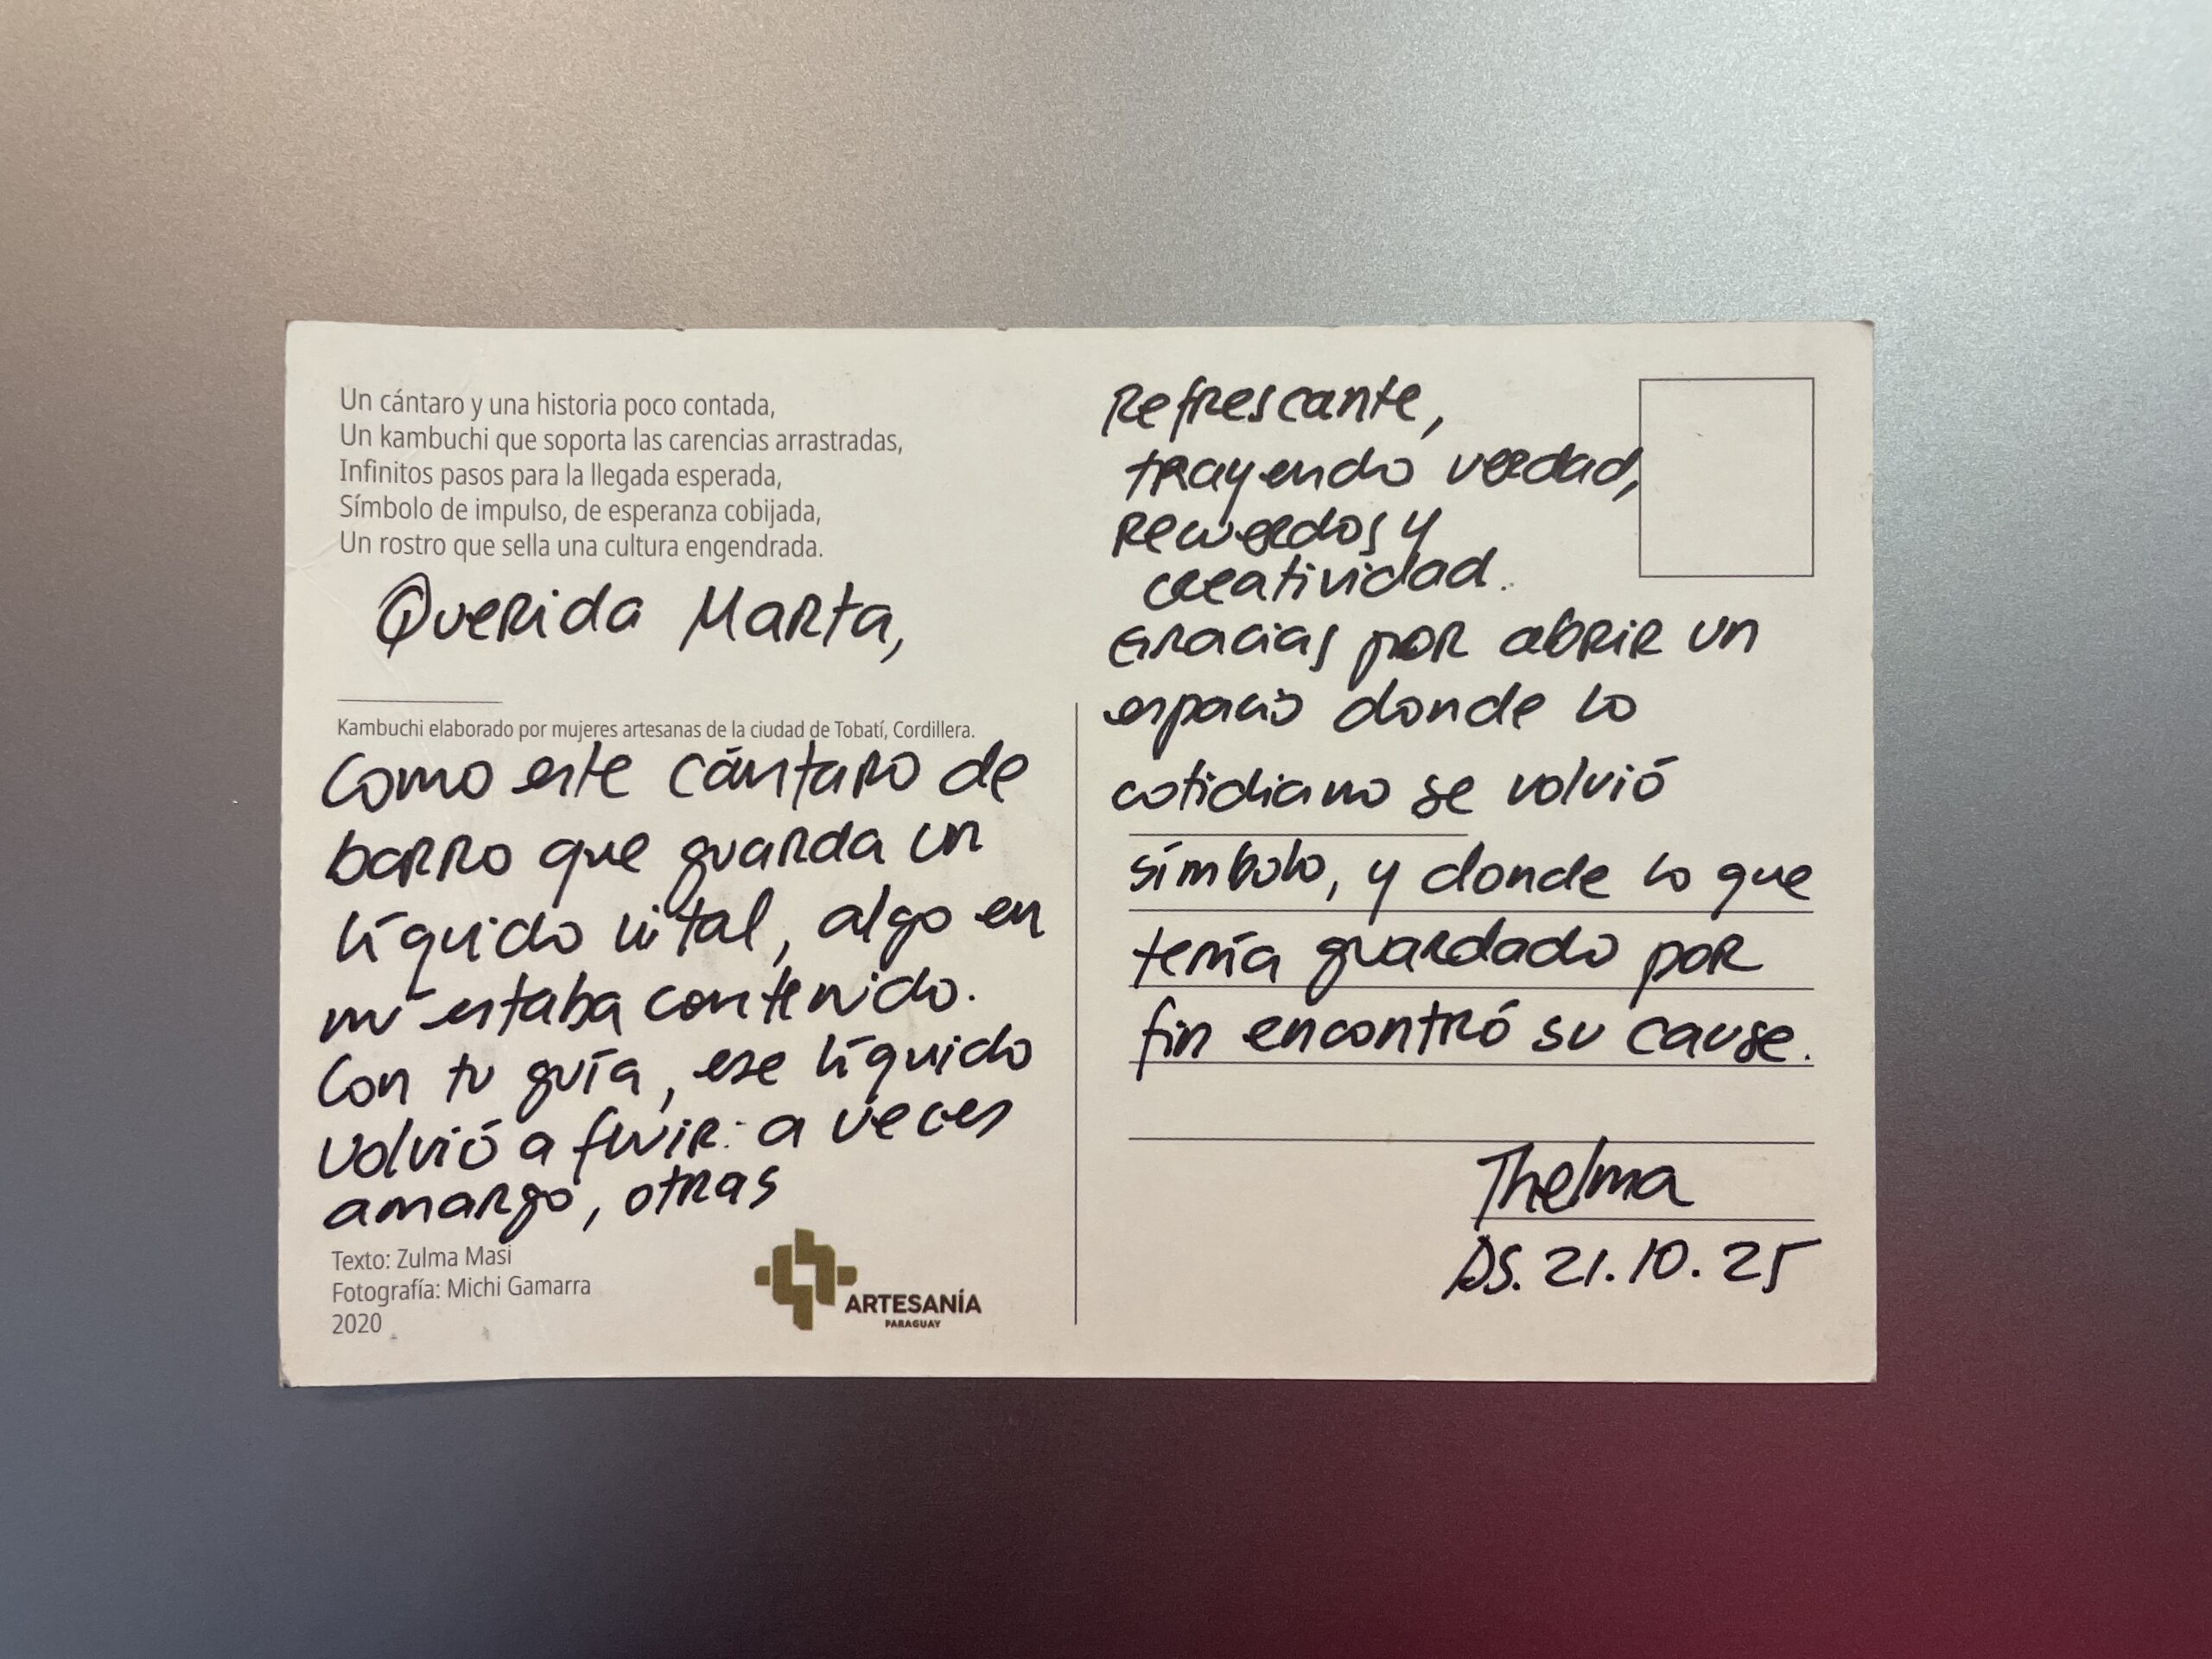 Un cántaro y una historia poco contada,
Un kambuchi que soporta las carencias arrastradas,
Infinitos pasos para la llegada esperada,
Símbolo de impulso, de esperanza cobijada,
Un rostro que sella una cultura engendrada.
Querida Marta,
Kambuchi elaborado por mujeres artesanas de la ciudad de Tobatí, Cordillera.
Como este cántaro de
barro que guarda un
líquido vital, algo en
mí estaba contenido.
Con tu guía, ese líquido
volvió a fluir: a veces
amargo, otras
Texto: Zulma Masi
Fotografía: Michi Gamarra
2020
ARTESANÍA
PARAGUAY
Refrescante,
trayendo verdad,
recuerdos y
creatividad.
Gracias por abrir un
espacio donde lo
cotidiano se volvió
símbolo, y donde lo que
tenía guardado por
fin encontró su cause.
Thelma
DS. 21.10.25